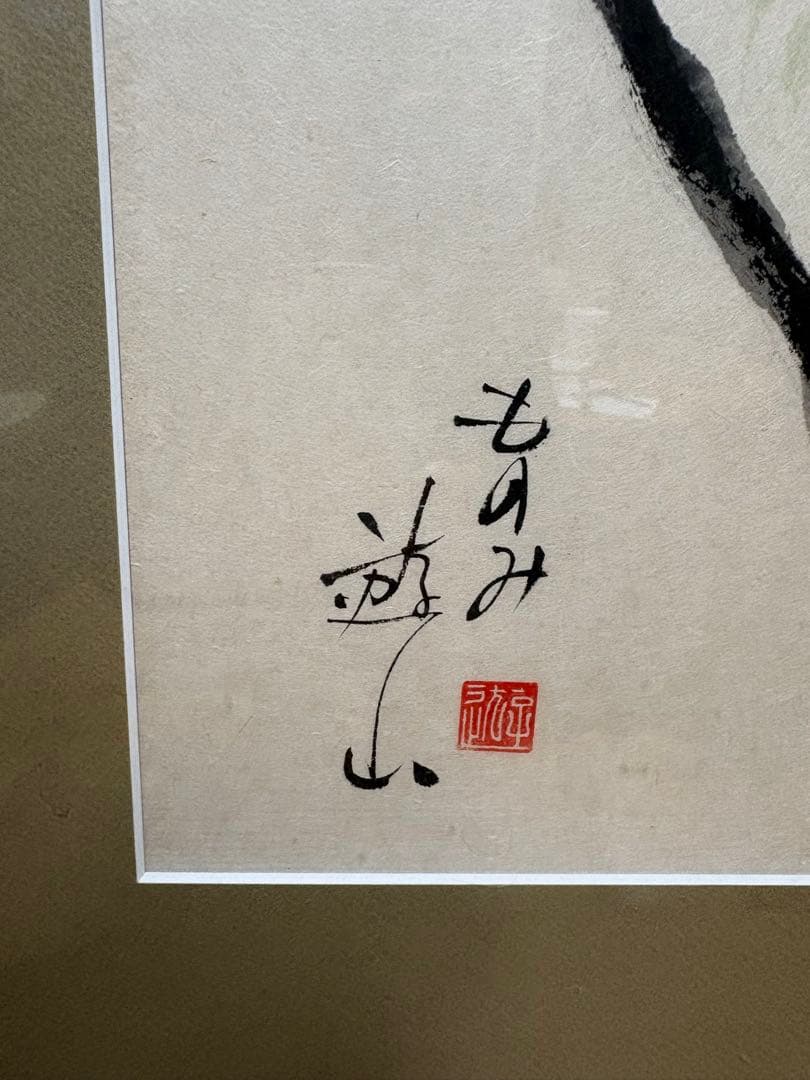 ものみ
遊山